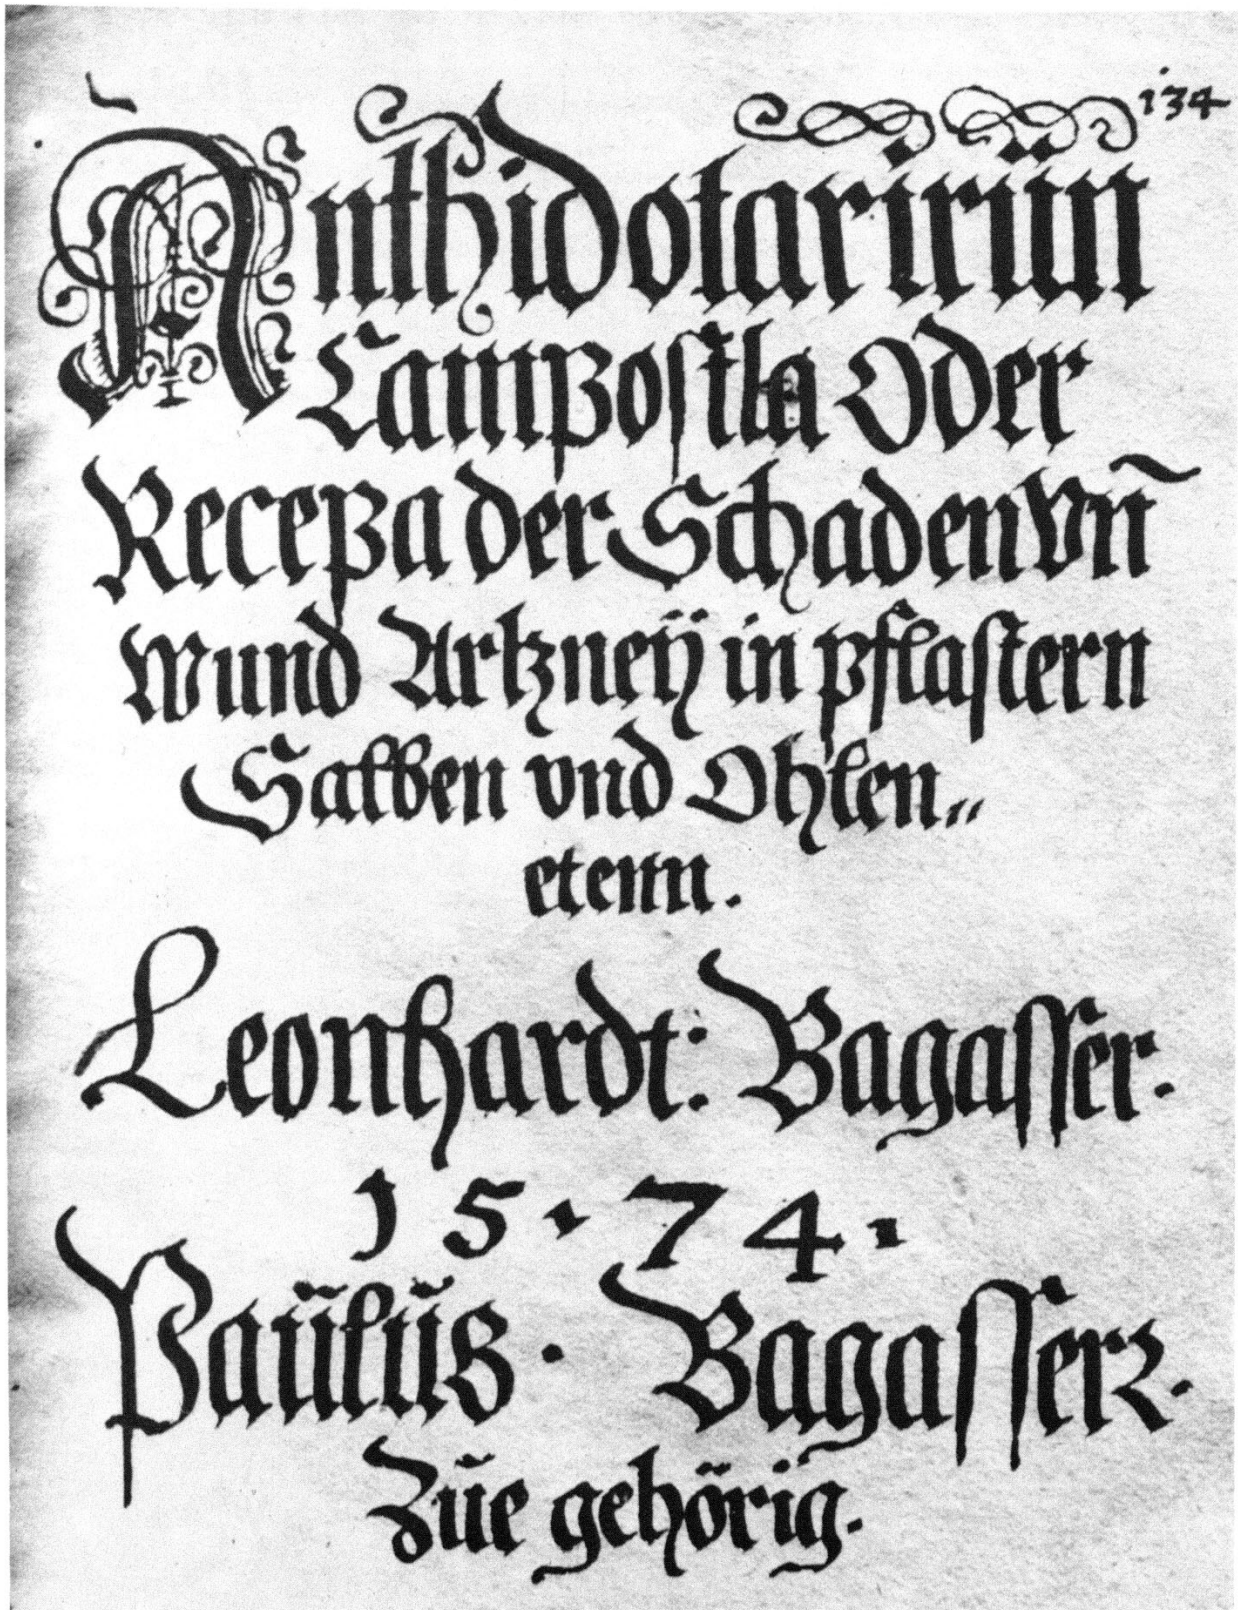 134
Anthidotarirün
Campostla Oder
Recepta der Schaden Vn̄
wund Artzneÿ in pflastern
Salben vnd Ohlen„
etenn.
Leonhardt: Bagasser.
15·74·
Paülüs· Bagasserr.
Züe gehörig.